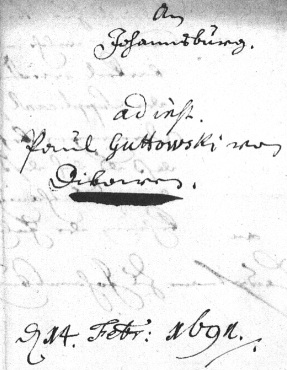 An
Johannsburg.
ad inst.
Paul Guttowski von
d 14. Febr: 1691.